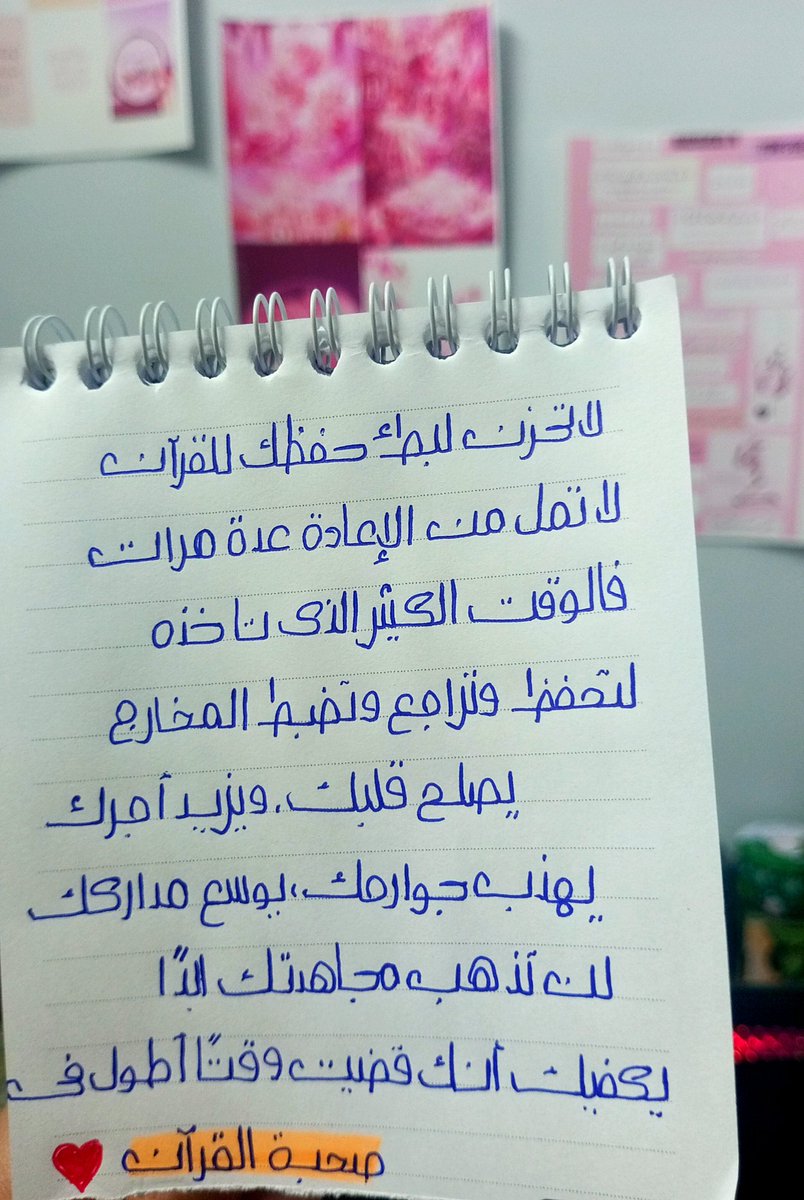 لا تحزن لبطء حفظك للقرآن
لا تمل من الإعادة عدة مرات
فالوقت الكثير الذى تاخذه
لتحفظ وتراجع وتضبط المخارج
يصلح قلبك، ويزيد أجرك
يهذب جوارحك، يوسع مداركك
لن تذهب مجاهدتك ابدًا
يكفيك أنك قضيت وقتًا أطول فى
صحبة القرآن